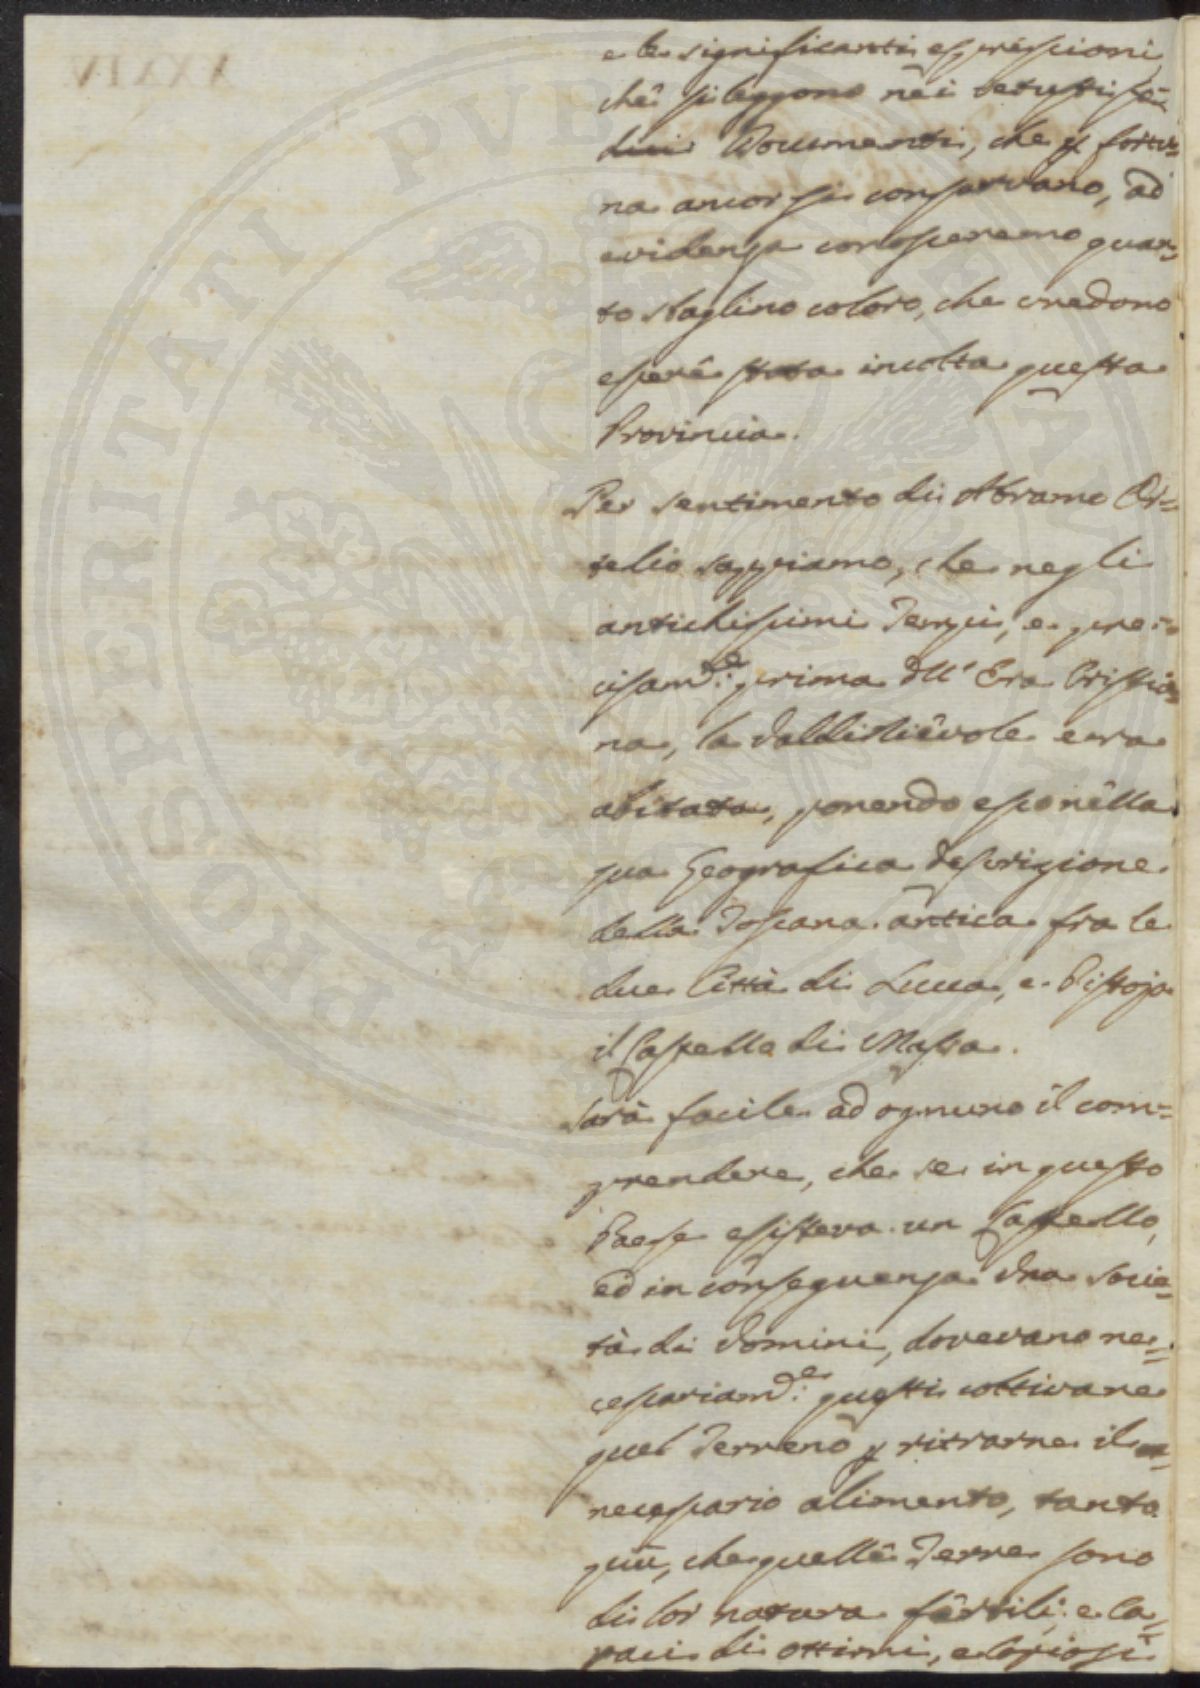 e le significanti espressioni,
che si leggono nei vetustissi=
Documenti, che p fortu=
na ancor si conservano, ad
evidenza conosceremo quan=
to sbaglino coloro, che credono
essere stata incolta questa
Provincia.
Per sentimento di Abramo Or=
telio sappiamo, che negli
antichissimi Tempi, e pre=
cisam.e prima dell' Era Cristia=
na, la Valdinievole era
abitata, ponendo esso nella
sua Geografica descrizione
della Toscana antica fra le
due Città di Lucca, e Pistoja
il Castello di Massa.
Sarà facile ad ognuno il com=
prendere, che se in questo
Paese esisteva un Castello,
ed in conseguenza Una Socie=
tà di Uomini, dovevano ne=
cessariam.e questi coltivare
quel Terreno p ritrarne il
necessario alimento, tanto
più, che quelle Terre sono
di lor natura fertili, e ca=
paci di ottimi, e copiosi
PROSPERITATI PUBLICAE
XXXIV